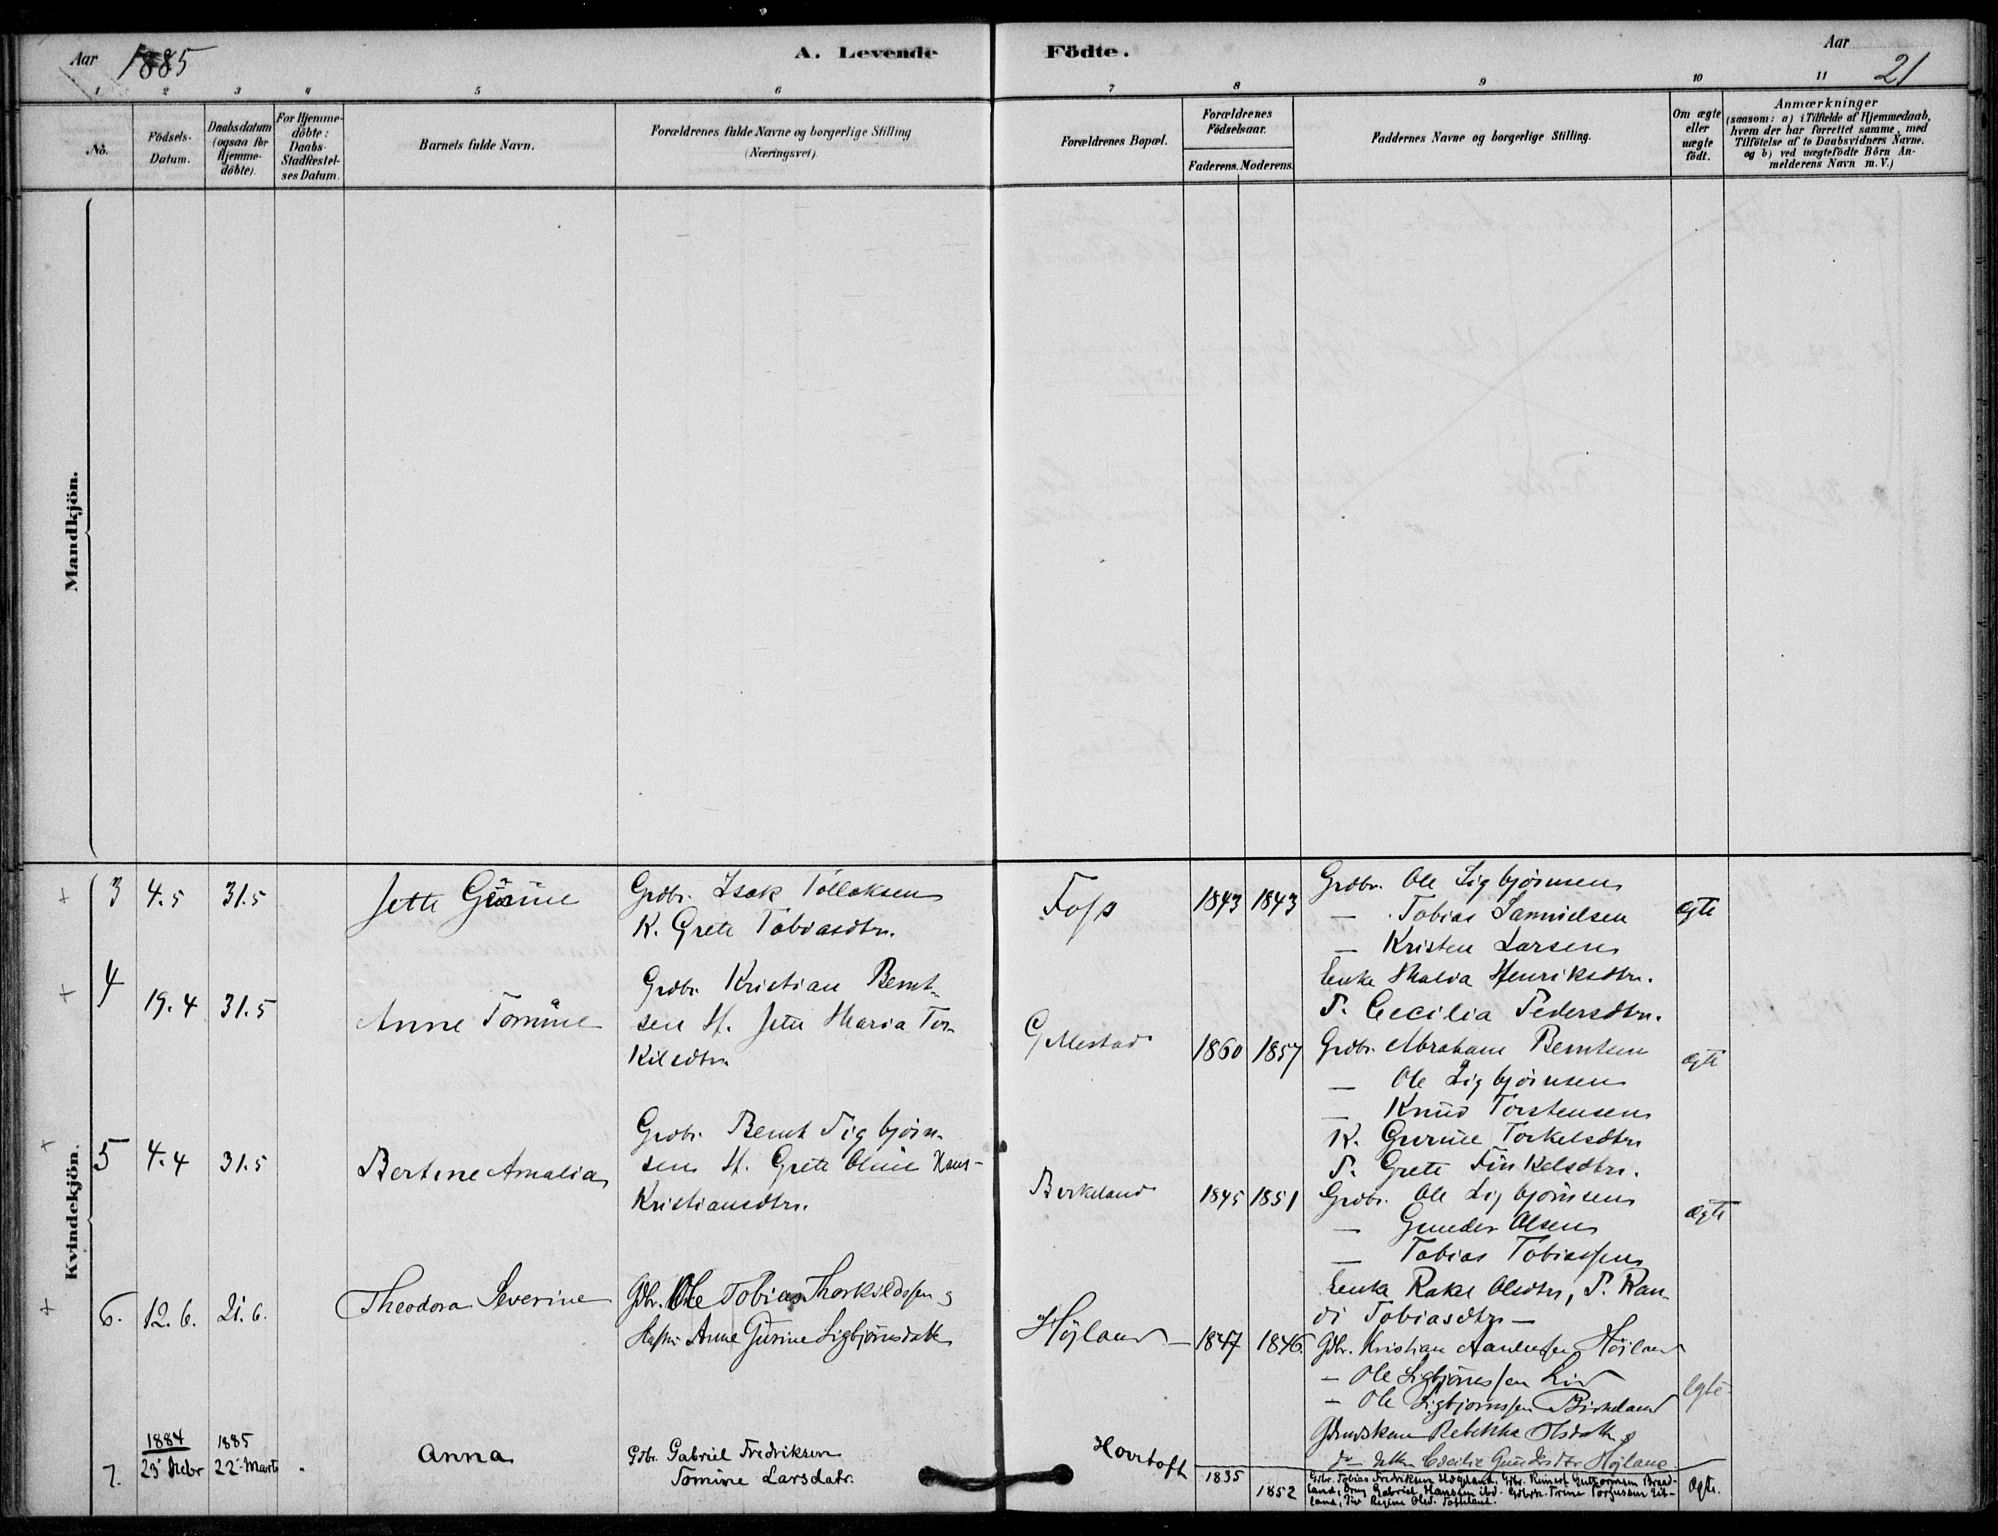 Aar 1885 A. Levende Födte. Aar 21
1 2 3 4 5 6 7 8 9 10 11
No.
Födsels-Datum.
Daabsdatum (ogsaa for Hjemme-döbte).
For Hjemme-döbte: Daabs-Stadfæstel-ses Datum.
Barnets fulde Navn.
Forældrenes fulde Navne og borgerlige Stilling (Næringsvei).
Forældrenes Bopæl.
Forældrenes Födselsaar.
Faderens. Moderens.
Faddernes Navne og borgerlige Stilling.
Om ægte eller uægte födt.
Anmærkninger
(saasom: a) i Tilfælde af Hjemmedaab,
hvem der har forrettet samme, med
Tilföielse af to Daabsvidners Navne,
og b) ved uægtefödte Börn An-
melderens Navn m. V.)
Mandkjön.
Kvindekjön.
3 4.5 31.5 Jette Gurine
Grdbr. Isak Tollaksen
K. Grete Tobiasdtr.
Foss 1843 1843
Grdbr. Ole Sigbjørnsen
— Tobias Samuelsen
— Kristen Larsen
Enke Malia Henriksdtr.
P. Cecilia Pedersdtr.
ægte
4 19.4 31.5 Anne Tomine
Grdbr. Kristian Bernt-
sen H. Jette Maria Tor-
kilsdtr.
1860 1857
Grdbr. Abraham Berntsen
— Ole Sigbjørnsen
— Knud Torstensen
K. Gurine Torkelsdtr.
P. Grete Tinkelsdtr.
ægte
5 4.4 31.5 Bertine Amalia
Grdbr. Bernt Sigbjørn-
sen H. Grete Oline Hans-
Kristiansdtr.
Birkeland 1845 1851
Grdbr. Ole Sigbjørnsen
— Gunder Olsen
— Tobias Tobiassen
Enke Rakel Olsdtr, P. Ran-
di Tobiasdtr —
ægte
6. 12.6. 21.6. Theodora Severine
Gdbr. Ole Tobias Thorkildssen og
Hustru Anne Gurine Sigbjörnsdatter
Höjland 1847 1846.
Gdbr. Kristian Höjland
— Ole Sigbjörnssen Lid
— Ole Sigbjørnssen Birkeland
Rebekka Olsdatter
Cecilie Gundersdtr Højland
Egte
7. 1884 23' Debr 1885 22' Marts Anna
Gdbr. Gabriel Fredriksen
Tomine Larsdatr.
Hovtoft 1835 1852
Gdbr. Tobias Fredriksen Gdbr. Reinert Guttormsen
Gabriel Hanssen ibd. Trine Torgusen
Ægte.